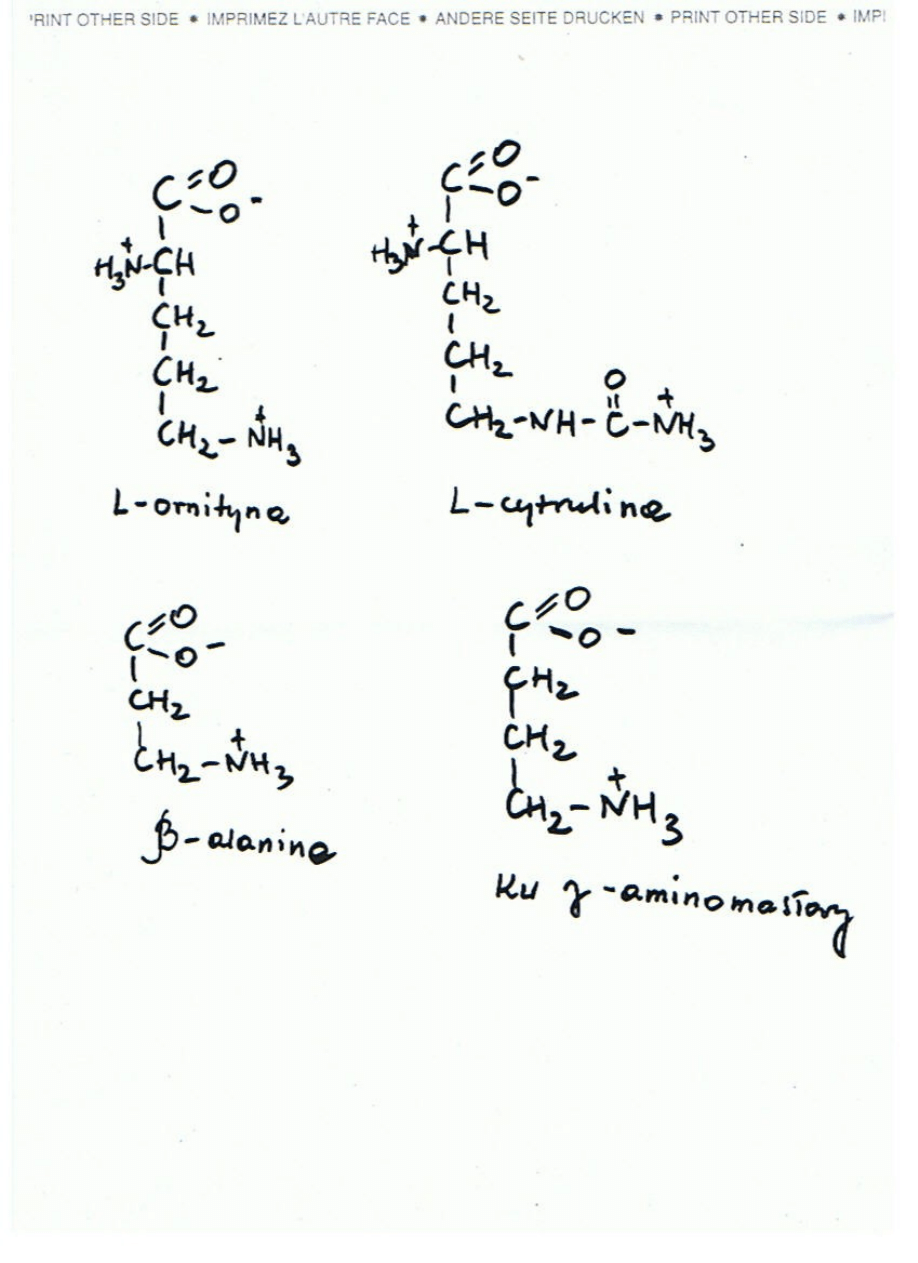 'RINT OTHER SIDE • IMPRIMEZ L'AUTRE FACE • ANDERE SEITE DRUCKEN • PRINT OTHER SIDE • IMPI
C=O
-O-
H3N+-CH
CH2
CH2
CH2-N+H3
L-ornityna
C=O
-O-
H3N+-CH
CH2
CH2
O
CH2-NH-C-N+H3
L-cytrulina
C=O
-O-
CH2
CH2-N+H3
β-alanina
C=O
-O-
CH2
CH2
CH2-N+H3
Kw γ-aminomasłowy